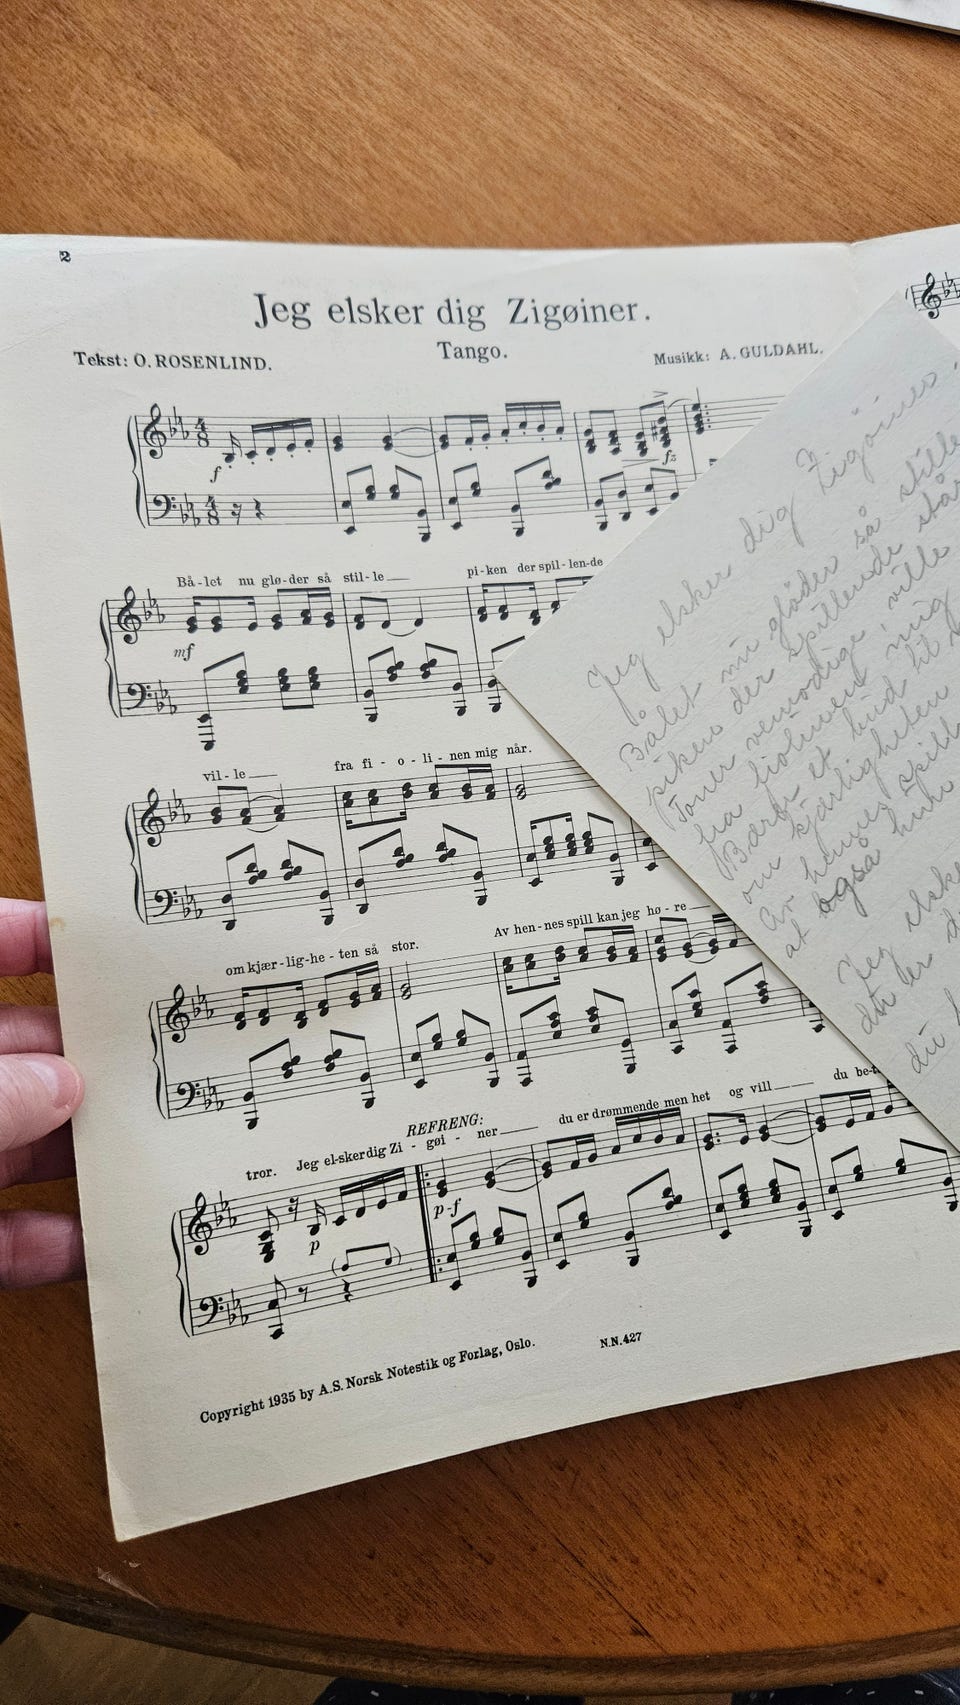 2
Jeg elsker dig Zigøiner.
Tekst: O. ROSENLIND.
Tango.
Musikk: A. GULDAHL.
f
fz
Bå-let nu glø-der så stil-le
pi-ken der spil-len-de
mf
vil-le
fra fi - o - li - nen mig når.
om kjær-lig-he-ten så stor.
Av hen-nes spill kan jeg hø-re
REFRENG:
tror. Jeg el-sker dig Zi - gøi - ner
du er drømmende men het og vill
du be-
p
p-f
Copyright 1935 by A.S. Norsk Notestik og Forlag, Oslo.
N.N. 427
Jeg elsker dig Zigøiner
Bålet nu gløder så stille
piken der spillende står
Toner vemodige, ville
fra fiolinen mig
Bærer et bud til
om kjærligheten
Av hennes spill
at også hun
Jeg elsker
du er
du